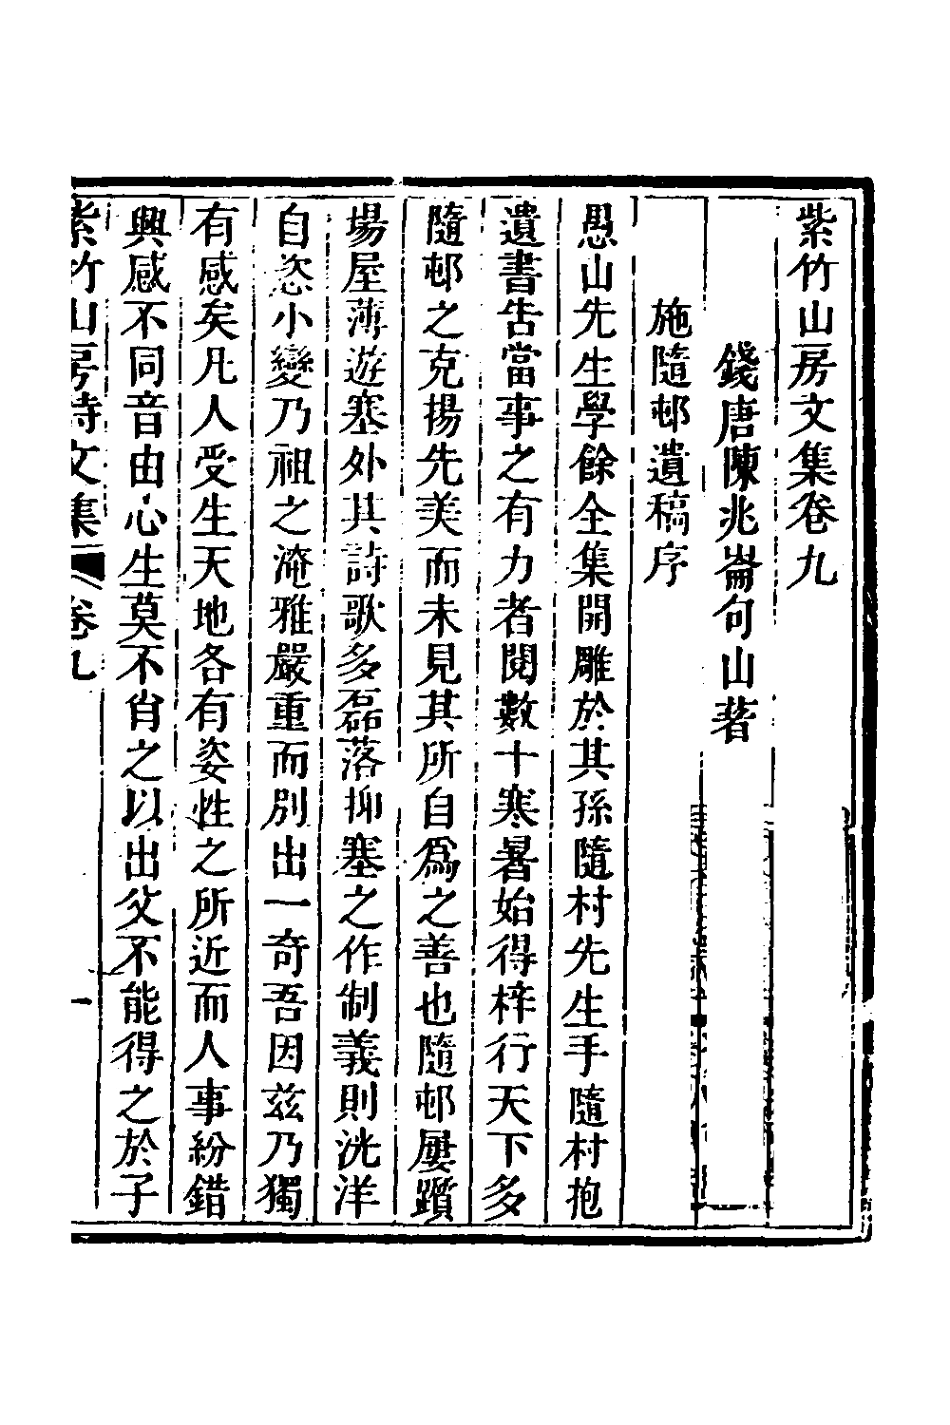 紫竹山房文集卷九
錢唐陳兆崙句山著
施隨邨遺稿序
愚山先生學餘全集開雕於其孫隨村先生手隨村抱
遺書告當事之有力者閱數十寒暑始得梓行天下多
隨邨之克揚先美而未見其所自爲之善也隨邨屢躓
場屋薄遊塞外其詩歌多磊落抑塞之作制義則洸洋
自恣小變乃祖之淹雅嚴重而別出一奇吾因茲乃獨
有感矣凡人受生天地各有姿性之所近而人事紛錯
興感不同音由心生莫不肖之以出父不能得之於子
紫竹山房詩文集 卷九 一